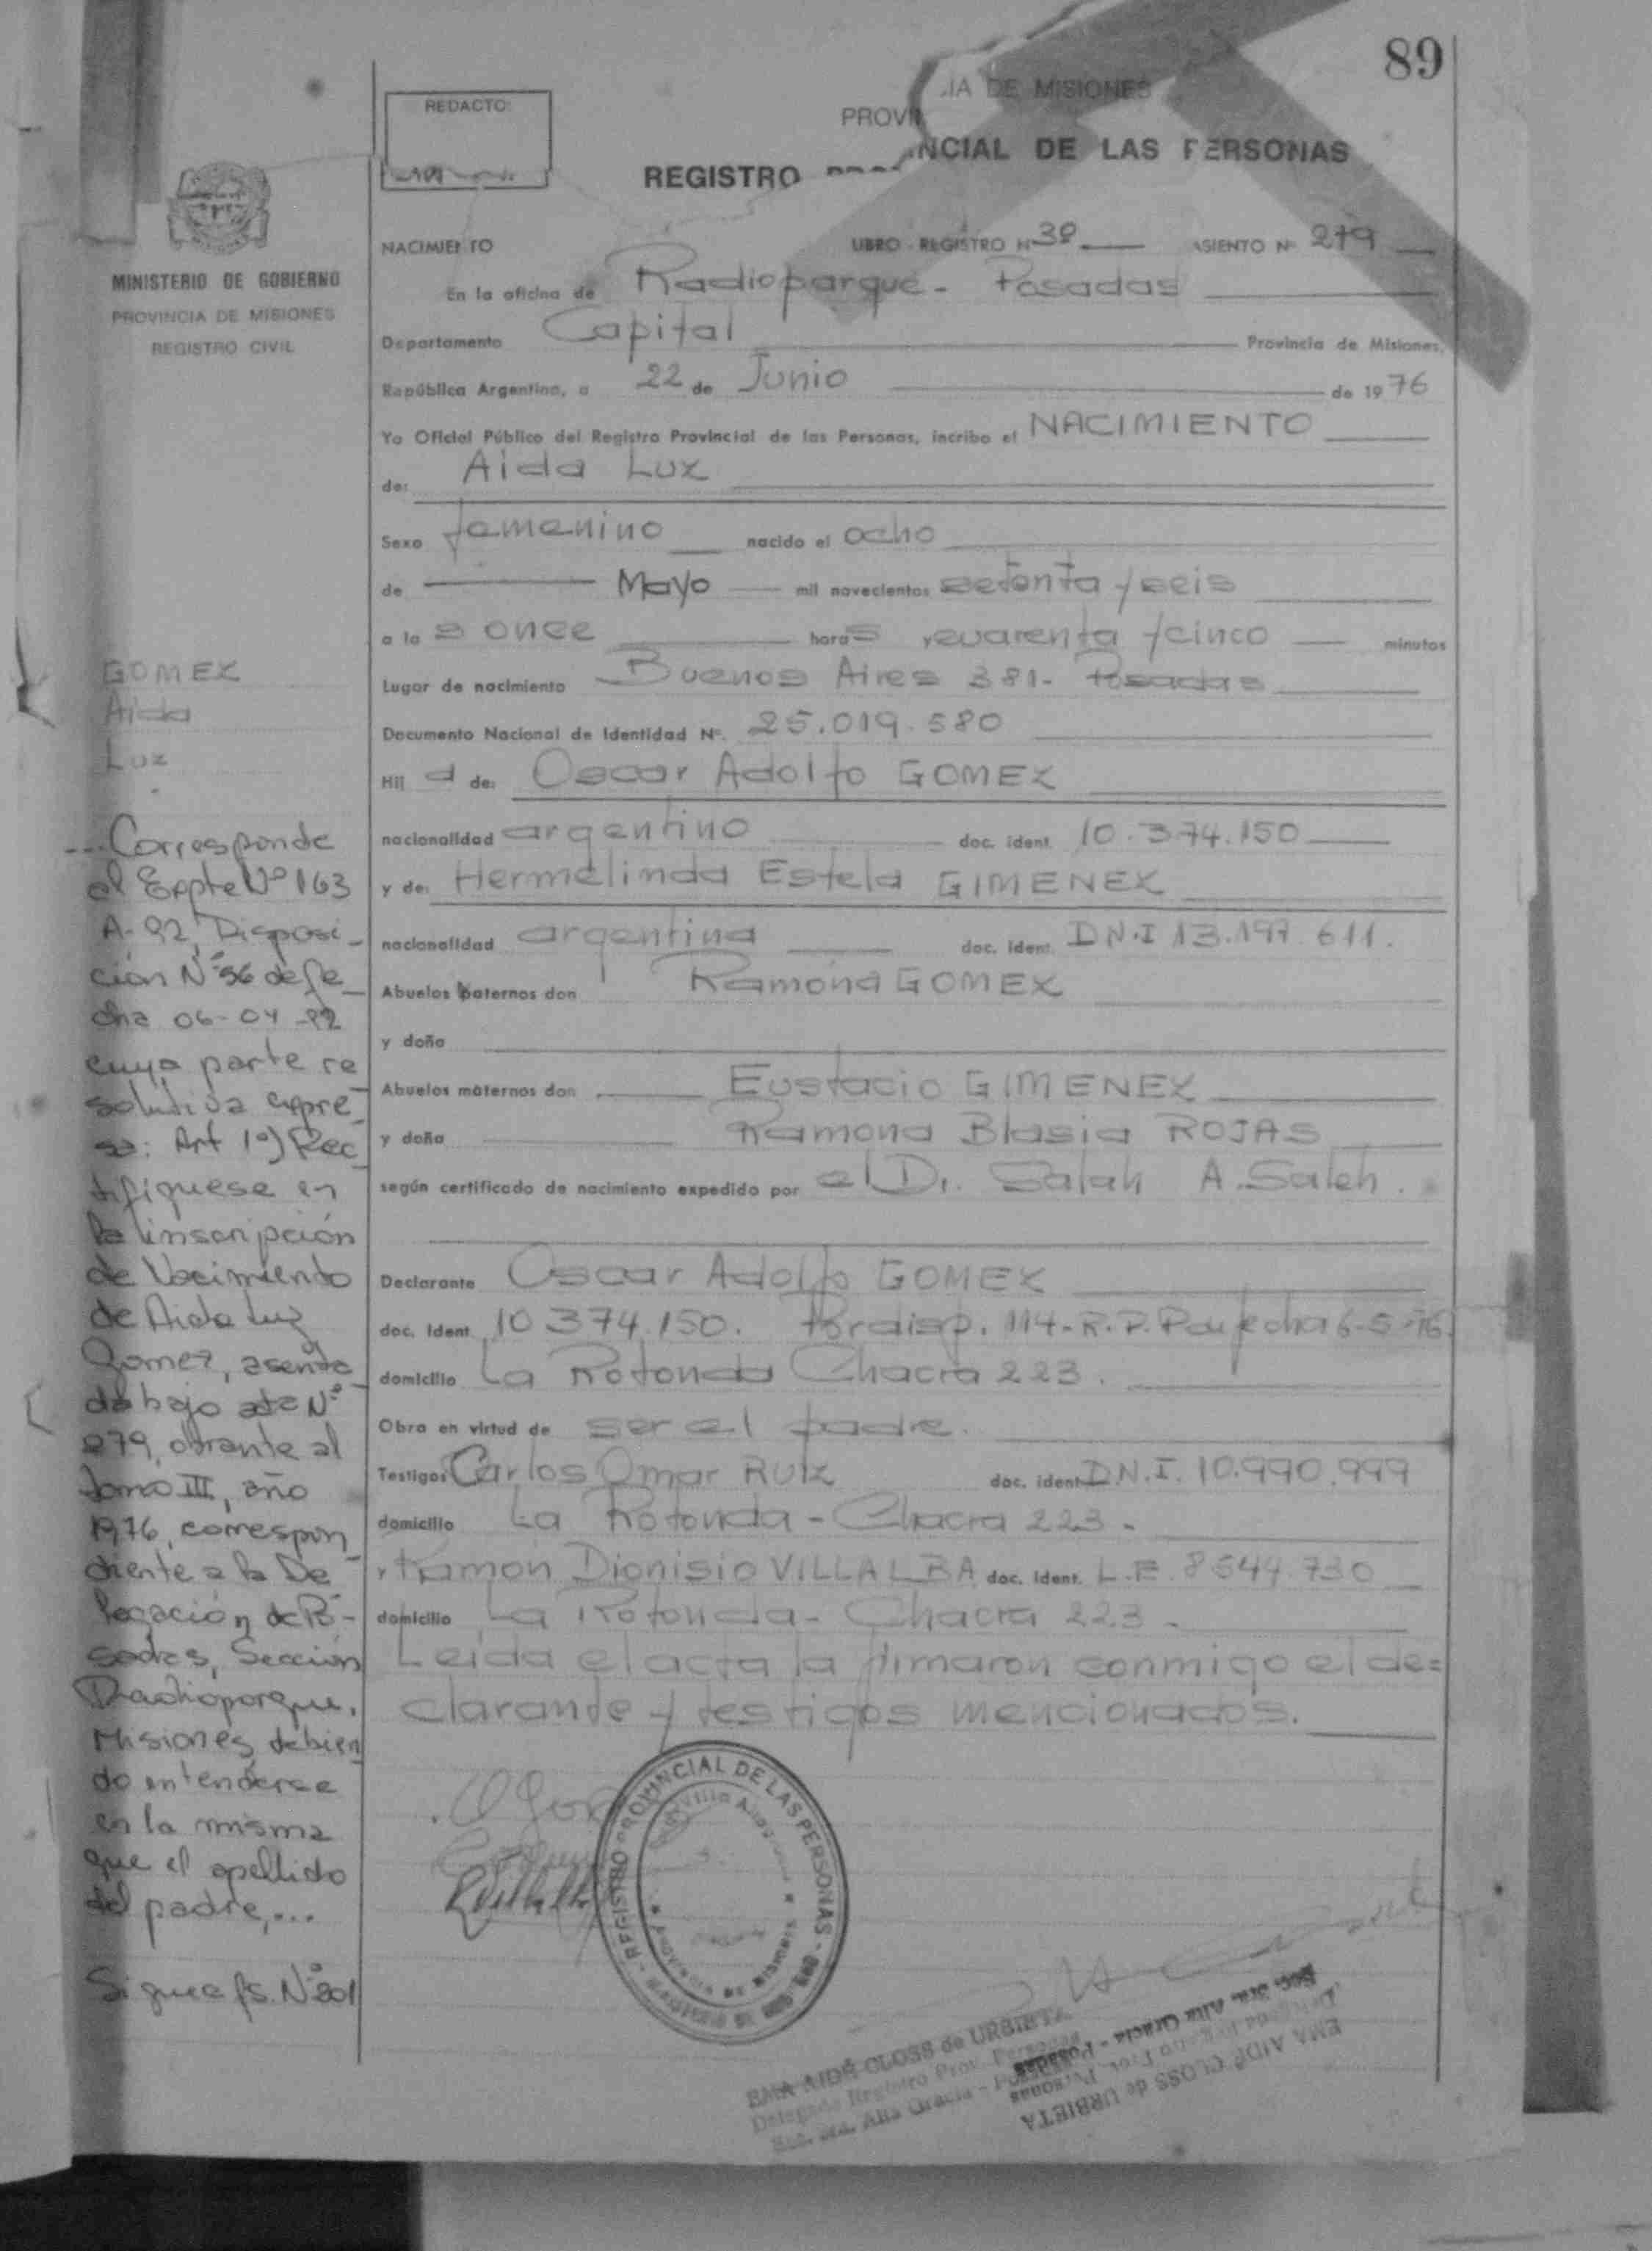 89
REDACTO:
PROVIN
IA DE MISIONES
REGISTRO
INCIAL DE LAS PERSONAS
MINISTERIO DE GOBIERNO
PROVINCIA DE MISIONES
REGISTRO CIVIL
NACIMIENTO LIBRO REGISTRO Nº ASIENTO Nº 279
En la oficina de Radioparque - Posadas
Departamento Capital Provincia de Misiones,
República Argentina, a 22 de Junio de 1976
Yo Oficial Público del Registro Provincial de las Personas, incribo el NACIMIENTO
de: Aida Luz
Sexo femenino nacido el ocho
de Mayo mil novecientos setenta y seis
a las once horas y cuarenta y cinco minutos
Lugar de nacimiento Buenos Aires 381 - Posadas
Documento Nacional de Identidad Nº. 25.019.580
Hija de: Oscar Adolfo GOMEZ
nacionalidad argentino doc. ident. 10.374.150
y de: Hermelinda Estela GIMENEZ
nacionalidad argentina doc. ident. DN.I 13.197.611.
Abuelos paternos don Ramona GOMEZ
y doña
Abuelos maternos don Eustacio GIMENEZ
y doña Ramona Blasia ROJAS
según certificado de nacimiento expedido por el Dr. Salah A. Saleh.
Declarante Oscar Adolfo GOMEZ
doc. ident. 10374.150. Por disp. 114-R.P. fecha 6-5-76.
domicilio La Rotonda Chacra 223.
Obra en virtud de ser el padre.
Testigos Carlos Omar RUIZ doc. ident. D.N.I. 10.990.999
domicilio La Rotonda - Chacra 223 -
y Ramón Dionisio VILLALBA doc. ident. L.E. 8544.730
domicilio La Rotonda - Chacra 223 -
Leida el acta la firmaron conmigo el de=
clarante y testigos mencionados.
GOMEZ
Aida
Luz
... Corresponde
al Expte Nº 163
A-92, Disposi-
ción Nº 56 de fe-
cha 06-04-92
cuya parte re
solutiva expre-
sa: Art 1º) Rec-
tifiquese en
la inscripción
de Nacimiento
de Aida Luz
Gomez, asenta-
da bajo acta Nº
279, obrante al
tomo III, año
1976, correspon-
diente a la De-
legación de Po-
sadas, Sección
Radioparque,
Misiones, debien
do entenderse
en la misma
que el apellido
del padre,...
Sigue fs. Nº 201
REGISTRO PROVINCIAL DE LAS PERSONAS
PROVINCIA DE MISIONES
EMA AIDÉ CLOSS de URBIETA
Delegada Registro Prov. Personas
Sec. Sra. Alta Gracia - Posadas
EMA AIDÉ CLOSS de URBIETA
Delegada Registro Prov. Personas
Sec. Sra. Alta Gracia - Posadas